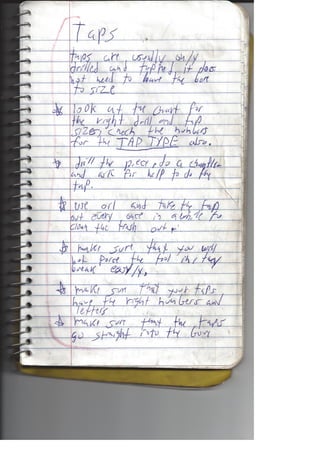 Taps
taps are usually only
drilled and tapped it does
not need to have the bore
to size
look at the chart for
the right drill and tap
sizes check the numbers
for the TAP TYPE also.
drill the piece, do a chamfer
and ask for help to do the
tap.
use oil and take the tap
out every once in a while to
clean the trash out.
make sure that you will
not force the tool
break easily.
make sure that your taps
have the right numbers and
letters
make sure that the taps
go straight into the bore